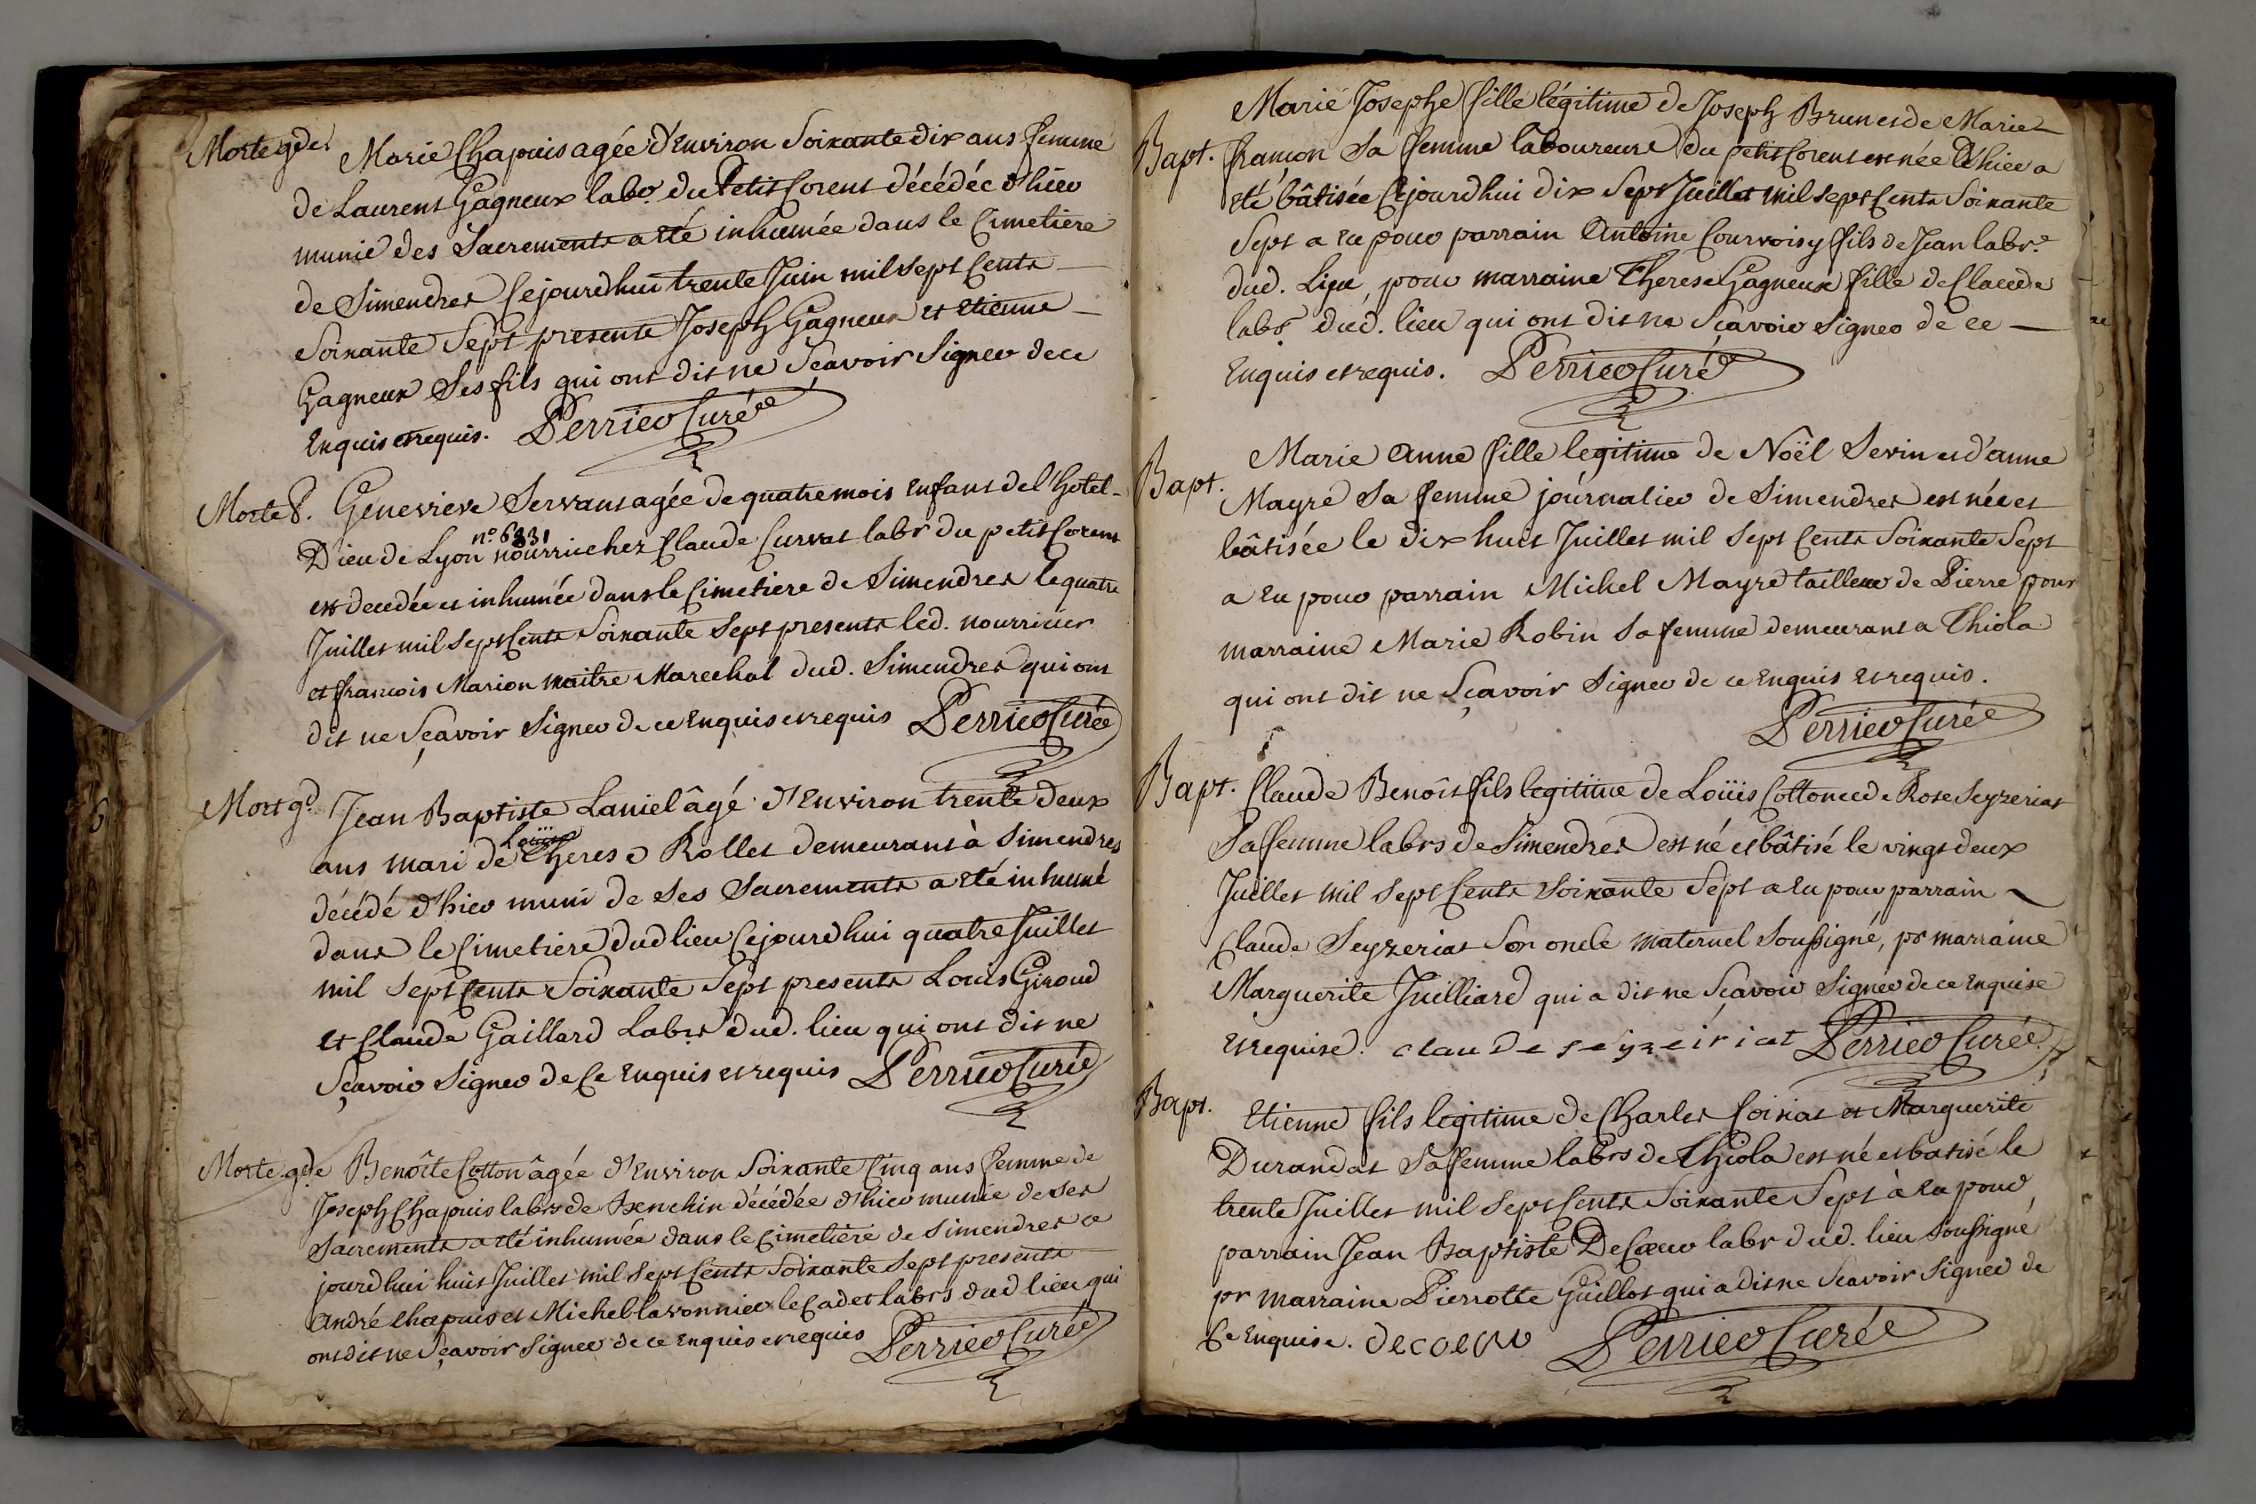 Morte gde. Marie Chapuis agée d'Environ Soixante dix ans femme
de Laurent Gagneux labr. du Petit Corent décédée d'hier
munie des Sacrements a eté inhumée dans le Cimetiere
de Simendres Cejourdhui trente Juin mil sept Cents
Soixante Sept presents Joseph Gagneux et Etienne
Gagneux Ses fils qui ont dit ne Sçavoir Signer de ce
Enquis et requis. Perrier Curé
Morte P. Genevieve Servans agée de quatre mois Enfant del'hotel-
n.° 6331
Dieu de Lyon nourri chez Claude Curvat labr du petit Corent
est decedée et inhumée dans le Cimetiere de Simendres le quatre
Juillet mil Sept Cents Soixante Sept presents led. nourricier
et francois Marion maitre Marechal dud. Simendres qui ont
dit ne Sçavoir Signer de ce Enquis et requis Perrier Curée
Mort gd. Jean Baptiste Laniel âgé d'Environ trente deux
Loüise
ans mari de Therese Rollet demeurant à Simendres
décédé d'hier muni de Ses Sacrements a eté inhumé
dans le Cimetiere dud lieu Cejourdhui quatre Juillet
mil Sept Cents Soixante Sept presents Louis Giroud
et Claude Gaillard Labrs dud. lieu qui ont dit ne
Sçavoir Signer de Ce Enquis et requis Perrier Curée
Morte gde Benoîte Cotton âgée d'Environ Soixante Cinq ans femme de
Joseph Chapuis labr de decédée d'hier munie de Ses
Sacrements a eté inhumée dans le Cimetiere de Simendres ce
jourdhui huit Juillet mil Sept Cents Soixante Sept presents
André Chapuis et Michel lavonnier le Cadet labrs dud lieu qui
ont dit ne Sçavoir Signer de ce Enquis et requis Perrier Curée
Marie Josephe fille légitime de Joseph Brun et de Marie
Bapt. françon Sa femme laboureurs du petit Corent est née d'hier a
eté bâtisée Cejourdhui dix Sept Juillet mil sept Cents Soixante
Sept a Eu pour parrain Antoine Courvoisy fils de Jean labr.
dud. Lieu, pour marraine Therese Gagneux fille de Claude
labr. dud. lieu qui ont dit ne Sçavoir Signer de ce
Enquis et requis. Perrier Curé
Marie Anne fille legitime de Noël Sevin et d'anne
Bapt. Mayre Sa femme journalier de Simendres est née et
bâtisée le dix huit Juillet mil Sept Cents Soixante Sept
a Eu pour parrain Michel Mayre tailleur de Pierre pour
marraine Marie Robin Sa femme demeurant a Thiola
qui ont dit ne Sçavoir Signer de ce Enquis et requis.
Perrier Curée
Bapt. Claude Benoît fils legitime de Loüis Cotton et de Rose Seyzeriat
Sa femme labrs de Simendres est né et bâtisé le vingt deux
Juillet mil Sept Cents Soixante Sept a Eu pour parrain
Claude Seyzeriat Son oncle maternel Soussigné, pr marraine
Marguerite Juilliard qui a dit ne Sçavoir Signer de ce Enquise
et requise. claude seyzeiriat Perrier Curée.
Bapt. Etienne fils legitime de Charles Coixiat et Marguerite
Durandat Sa femme labrs de Thiola est né et batisé le
trente Juillet mil Sept Cents Soixante Sept à Eu pour
parrain Jean Baptiste DeCoeur labr dud. lieu Soussigné,
pr marraine Pierrotte Guillot qui a dit ne Sçavoir Signer de
Ce Enquise. decoeur Perrier Curée